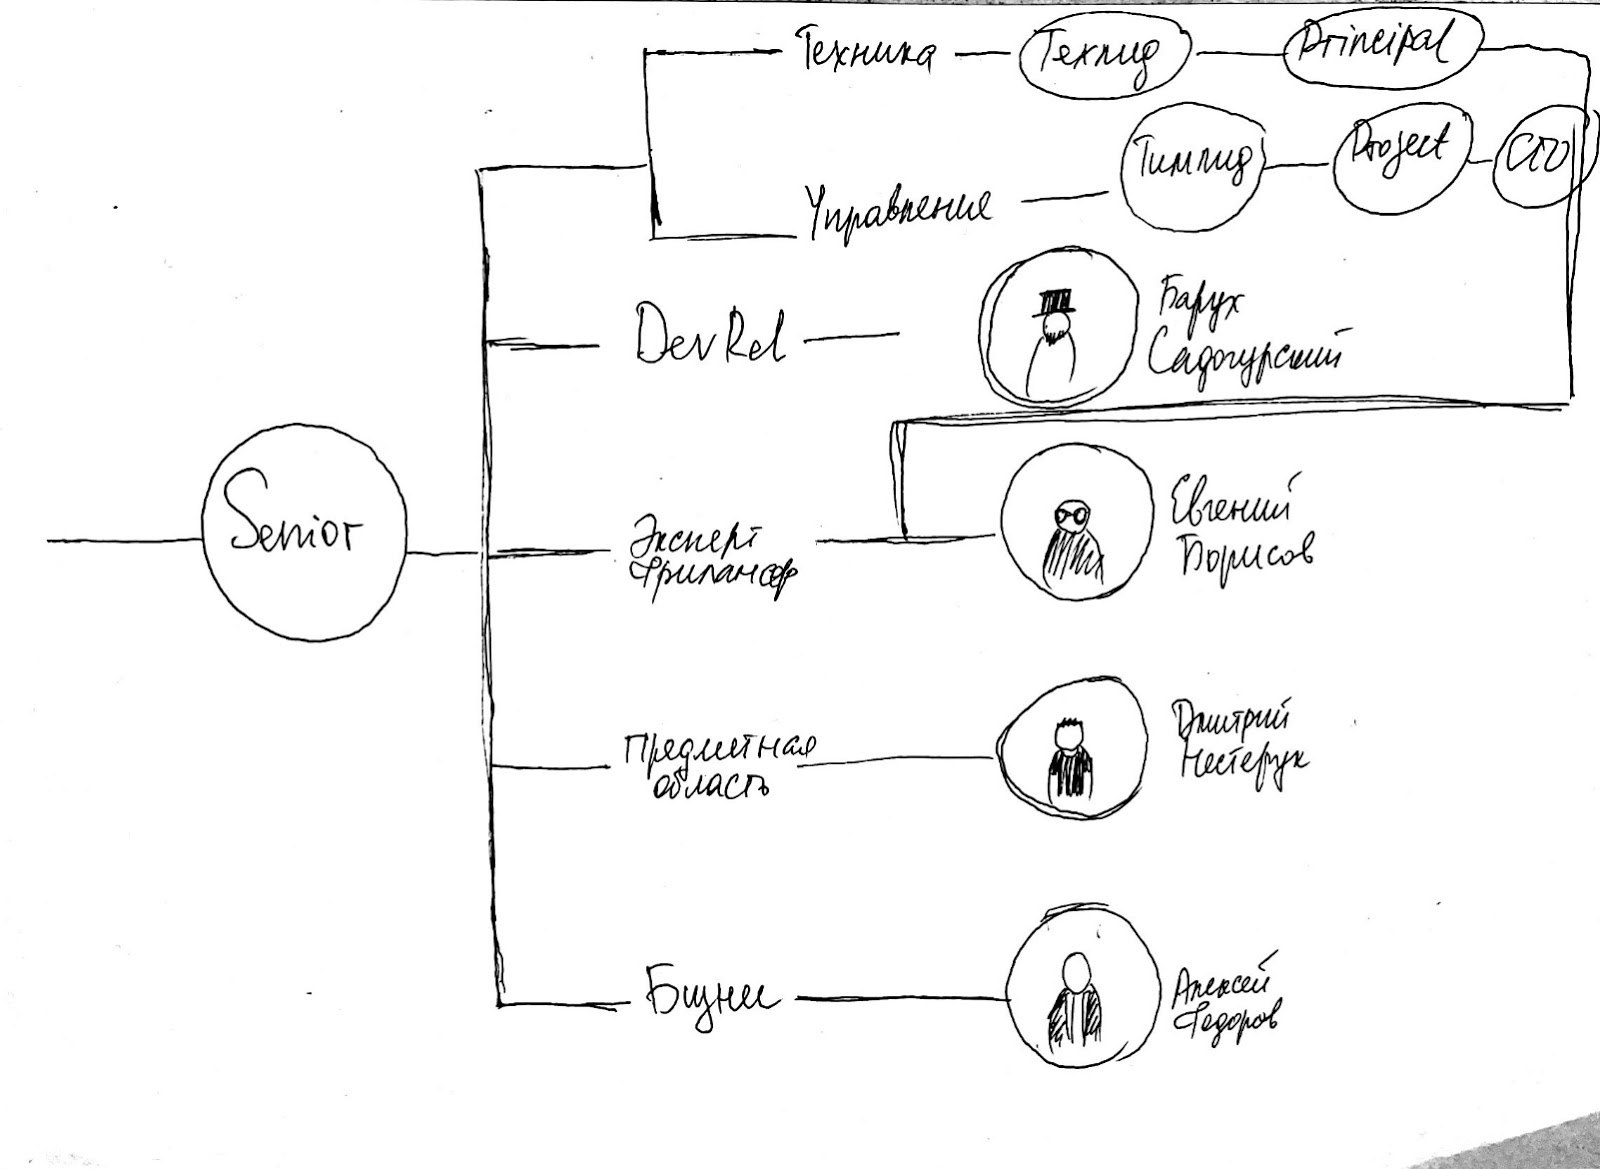 Техника
Техлид
Principal
Управление
Тимлид
Project
CTO
DevRel
Барух
Садогурский
Senior
Эксперт
Фрилансер
Евгений
Борисов
Предметная
область
Дмитрий
Нестерук
Бизнес
Алексей
Федоров